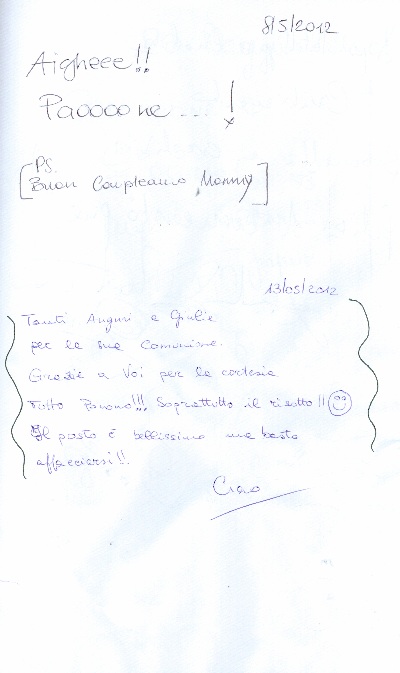 8/5/2012
Aigheee!!
Paoooone ... !
[PS.
Buon Compleanno Mommy]
13/05/2012
Tanti Auguri a Giulia
per la sua Comunione.
Grazie a Voi per la cortesia
Tutto Buono!!! Soprattutto il risotto!!
Il posto è bellissimo una basta
affacciarsi!!.
Ciao